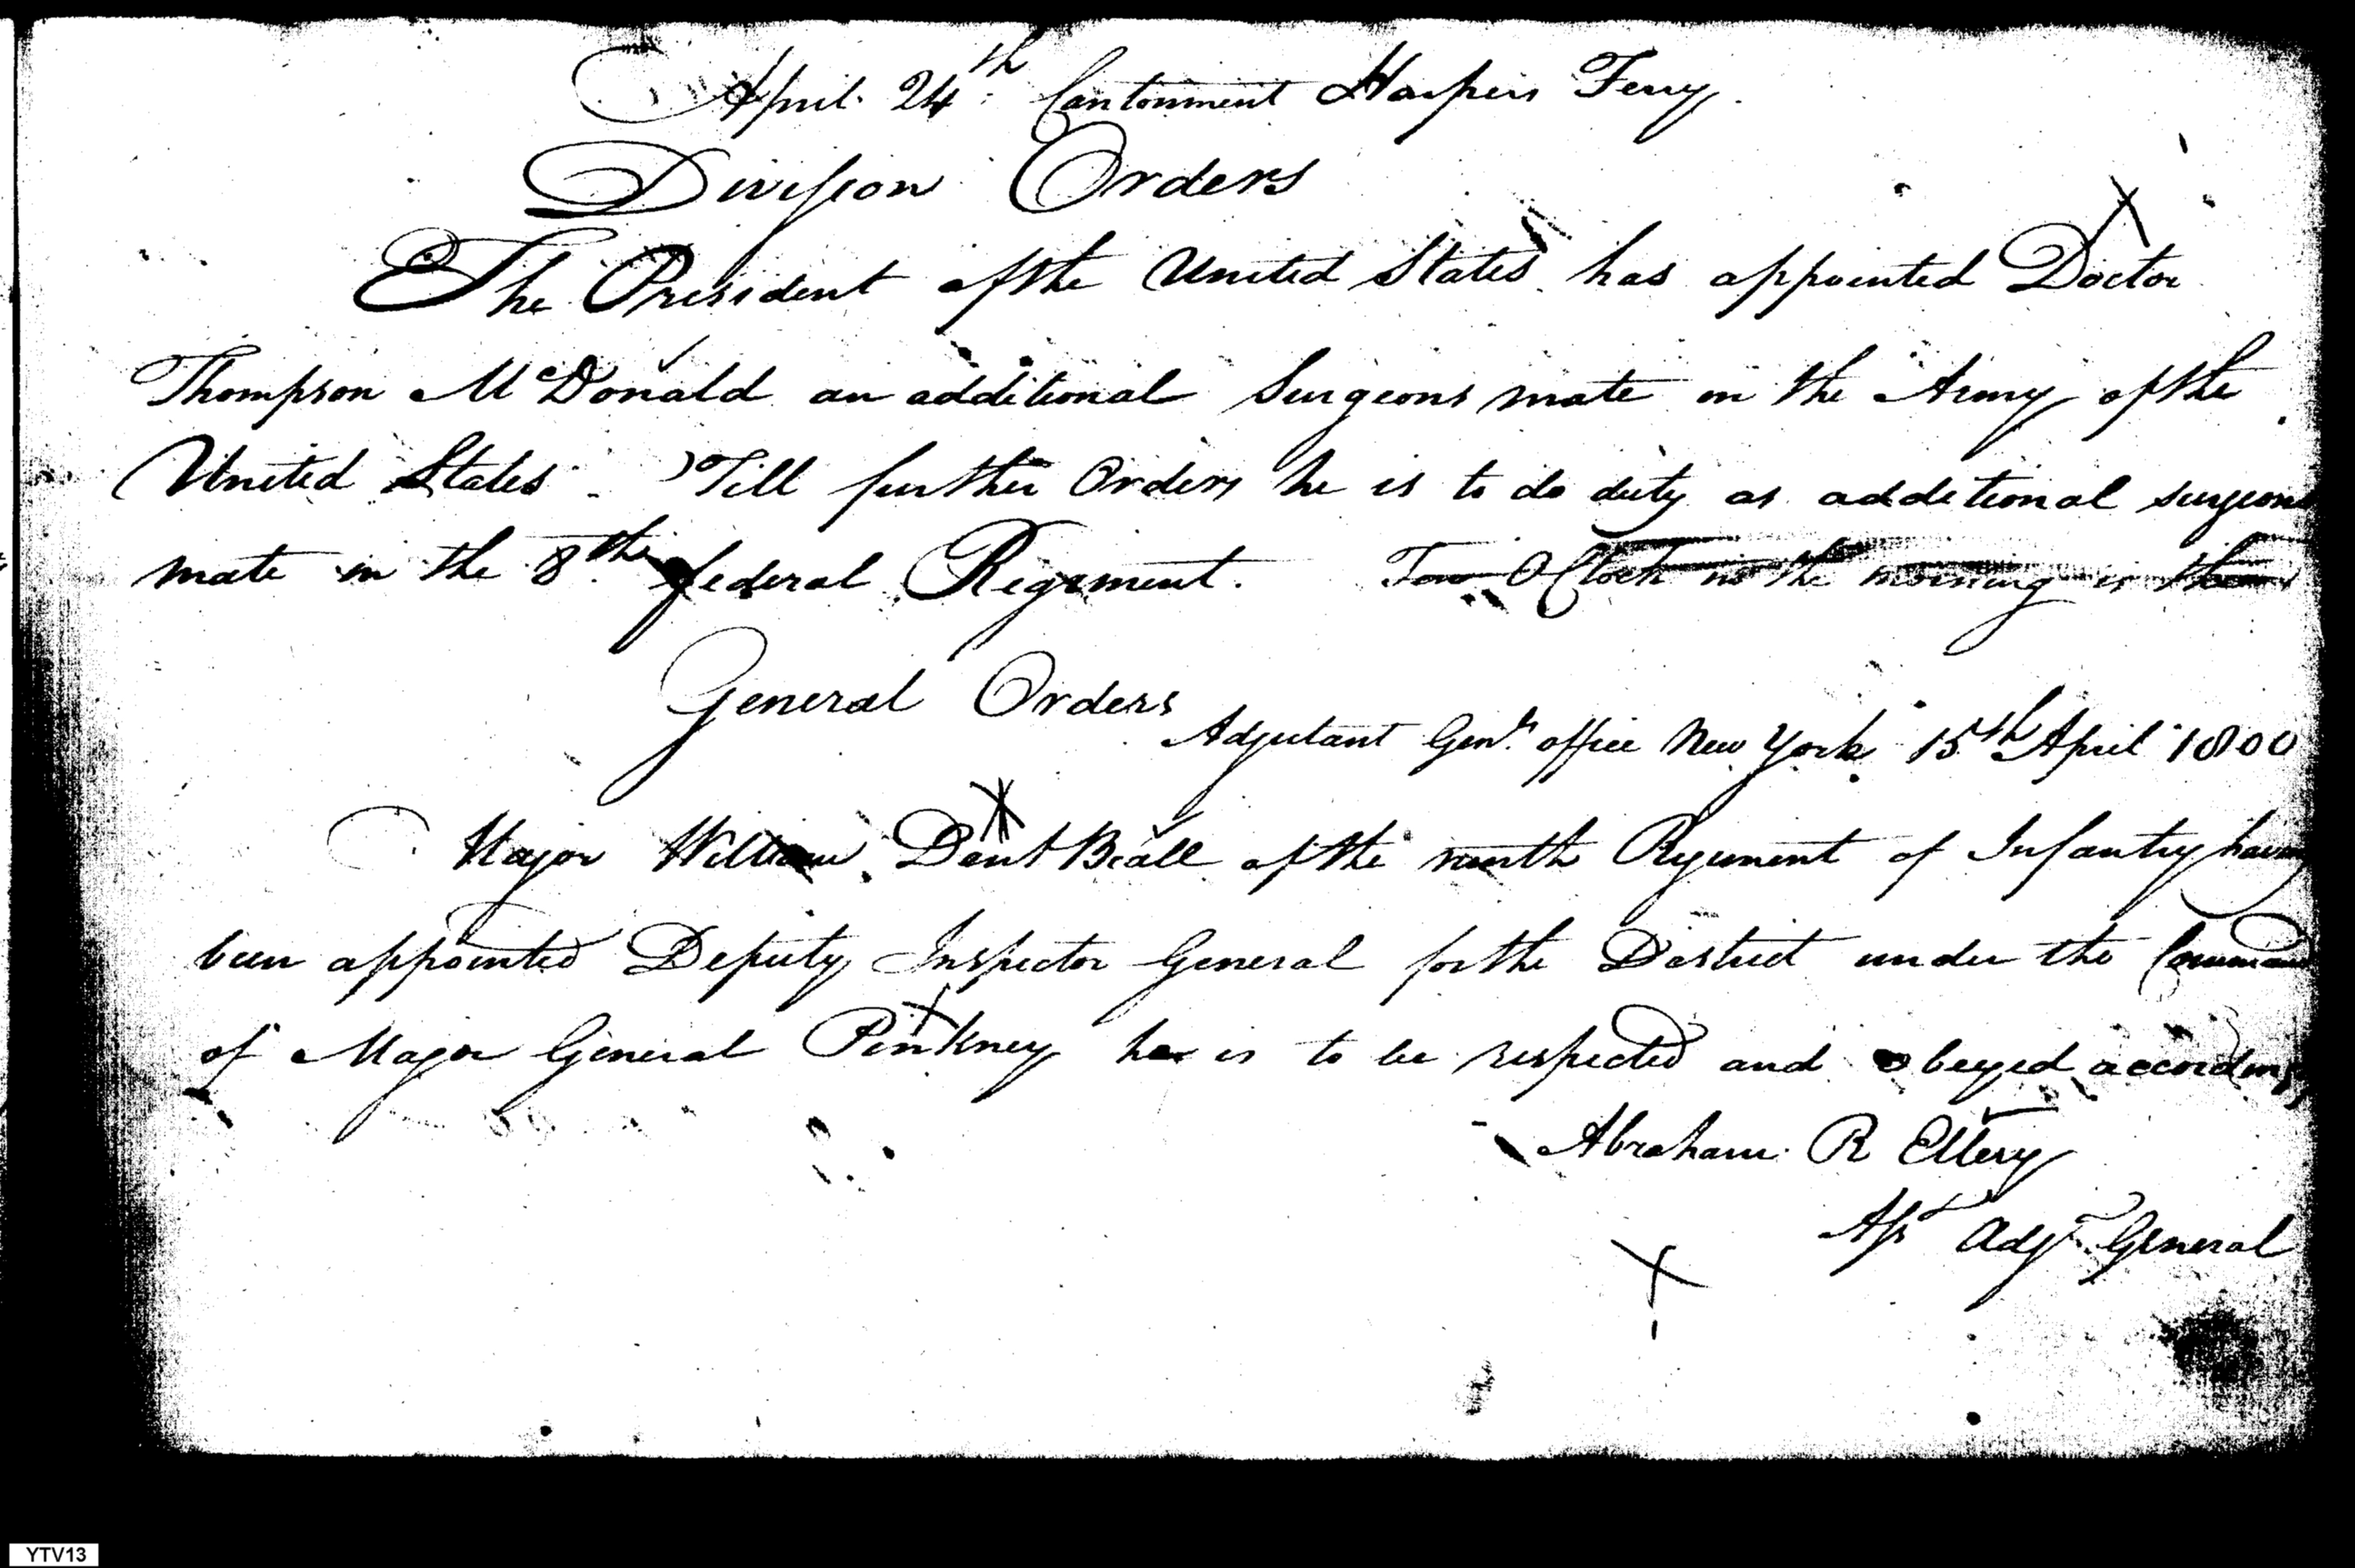 April 24th Cantonment Harpers Ferry.
Division Orders
The President of the United States has appointed Doctor
Thompson McDonald an additional Surgeons mate in the Army of the
United States. Till further Orders he is to do duty as additional surgeons
mate in the 8th federal Regiment. Ten OClock in the morning is the
General Orders
Adjutant Genls office New York 15th April 1800
Major William Dent Beall of the ninth Regiment of Infantry having
been appointed Deputy Inspector General for the District under the Command
of Major General Pinkney he is to be respected and obeyed accordingly
Abraham R Ellery
Asst Adjt General
YTV13